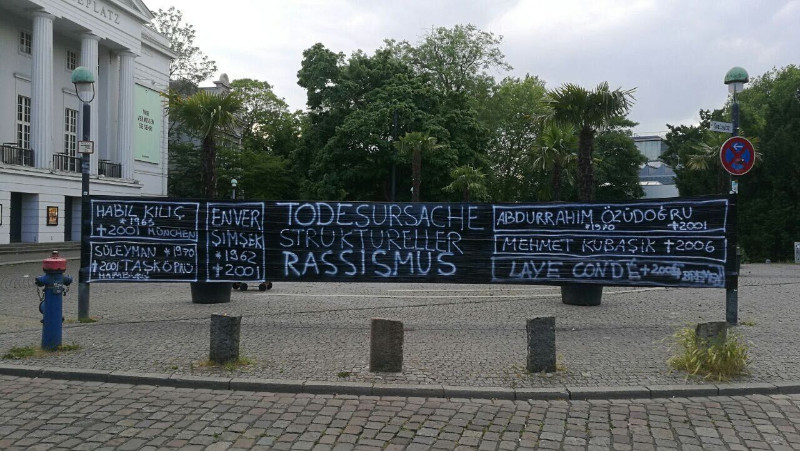 HABIL KILIÇ
* 1963
† 2001 MÜNCHEN
SÜLEYMAN * 1970
† 2001 TAŞKÖPRÜ
HAMBURG
ENVER
ŞIMŞEK
* 1962
† 2001
TODESURSACHE
STRUKTURELLER
RASSISMUS
ABDURRAHIM ÖZÜDOĞRU
† 2001
MEHMET KUBAŞIK † 2006
LAYE CONDÉ † 2005
BREMEN